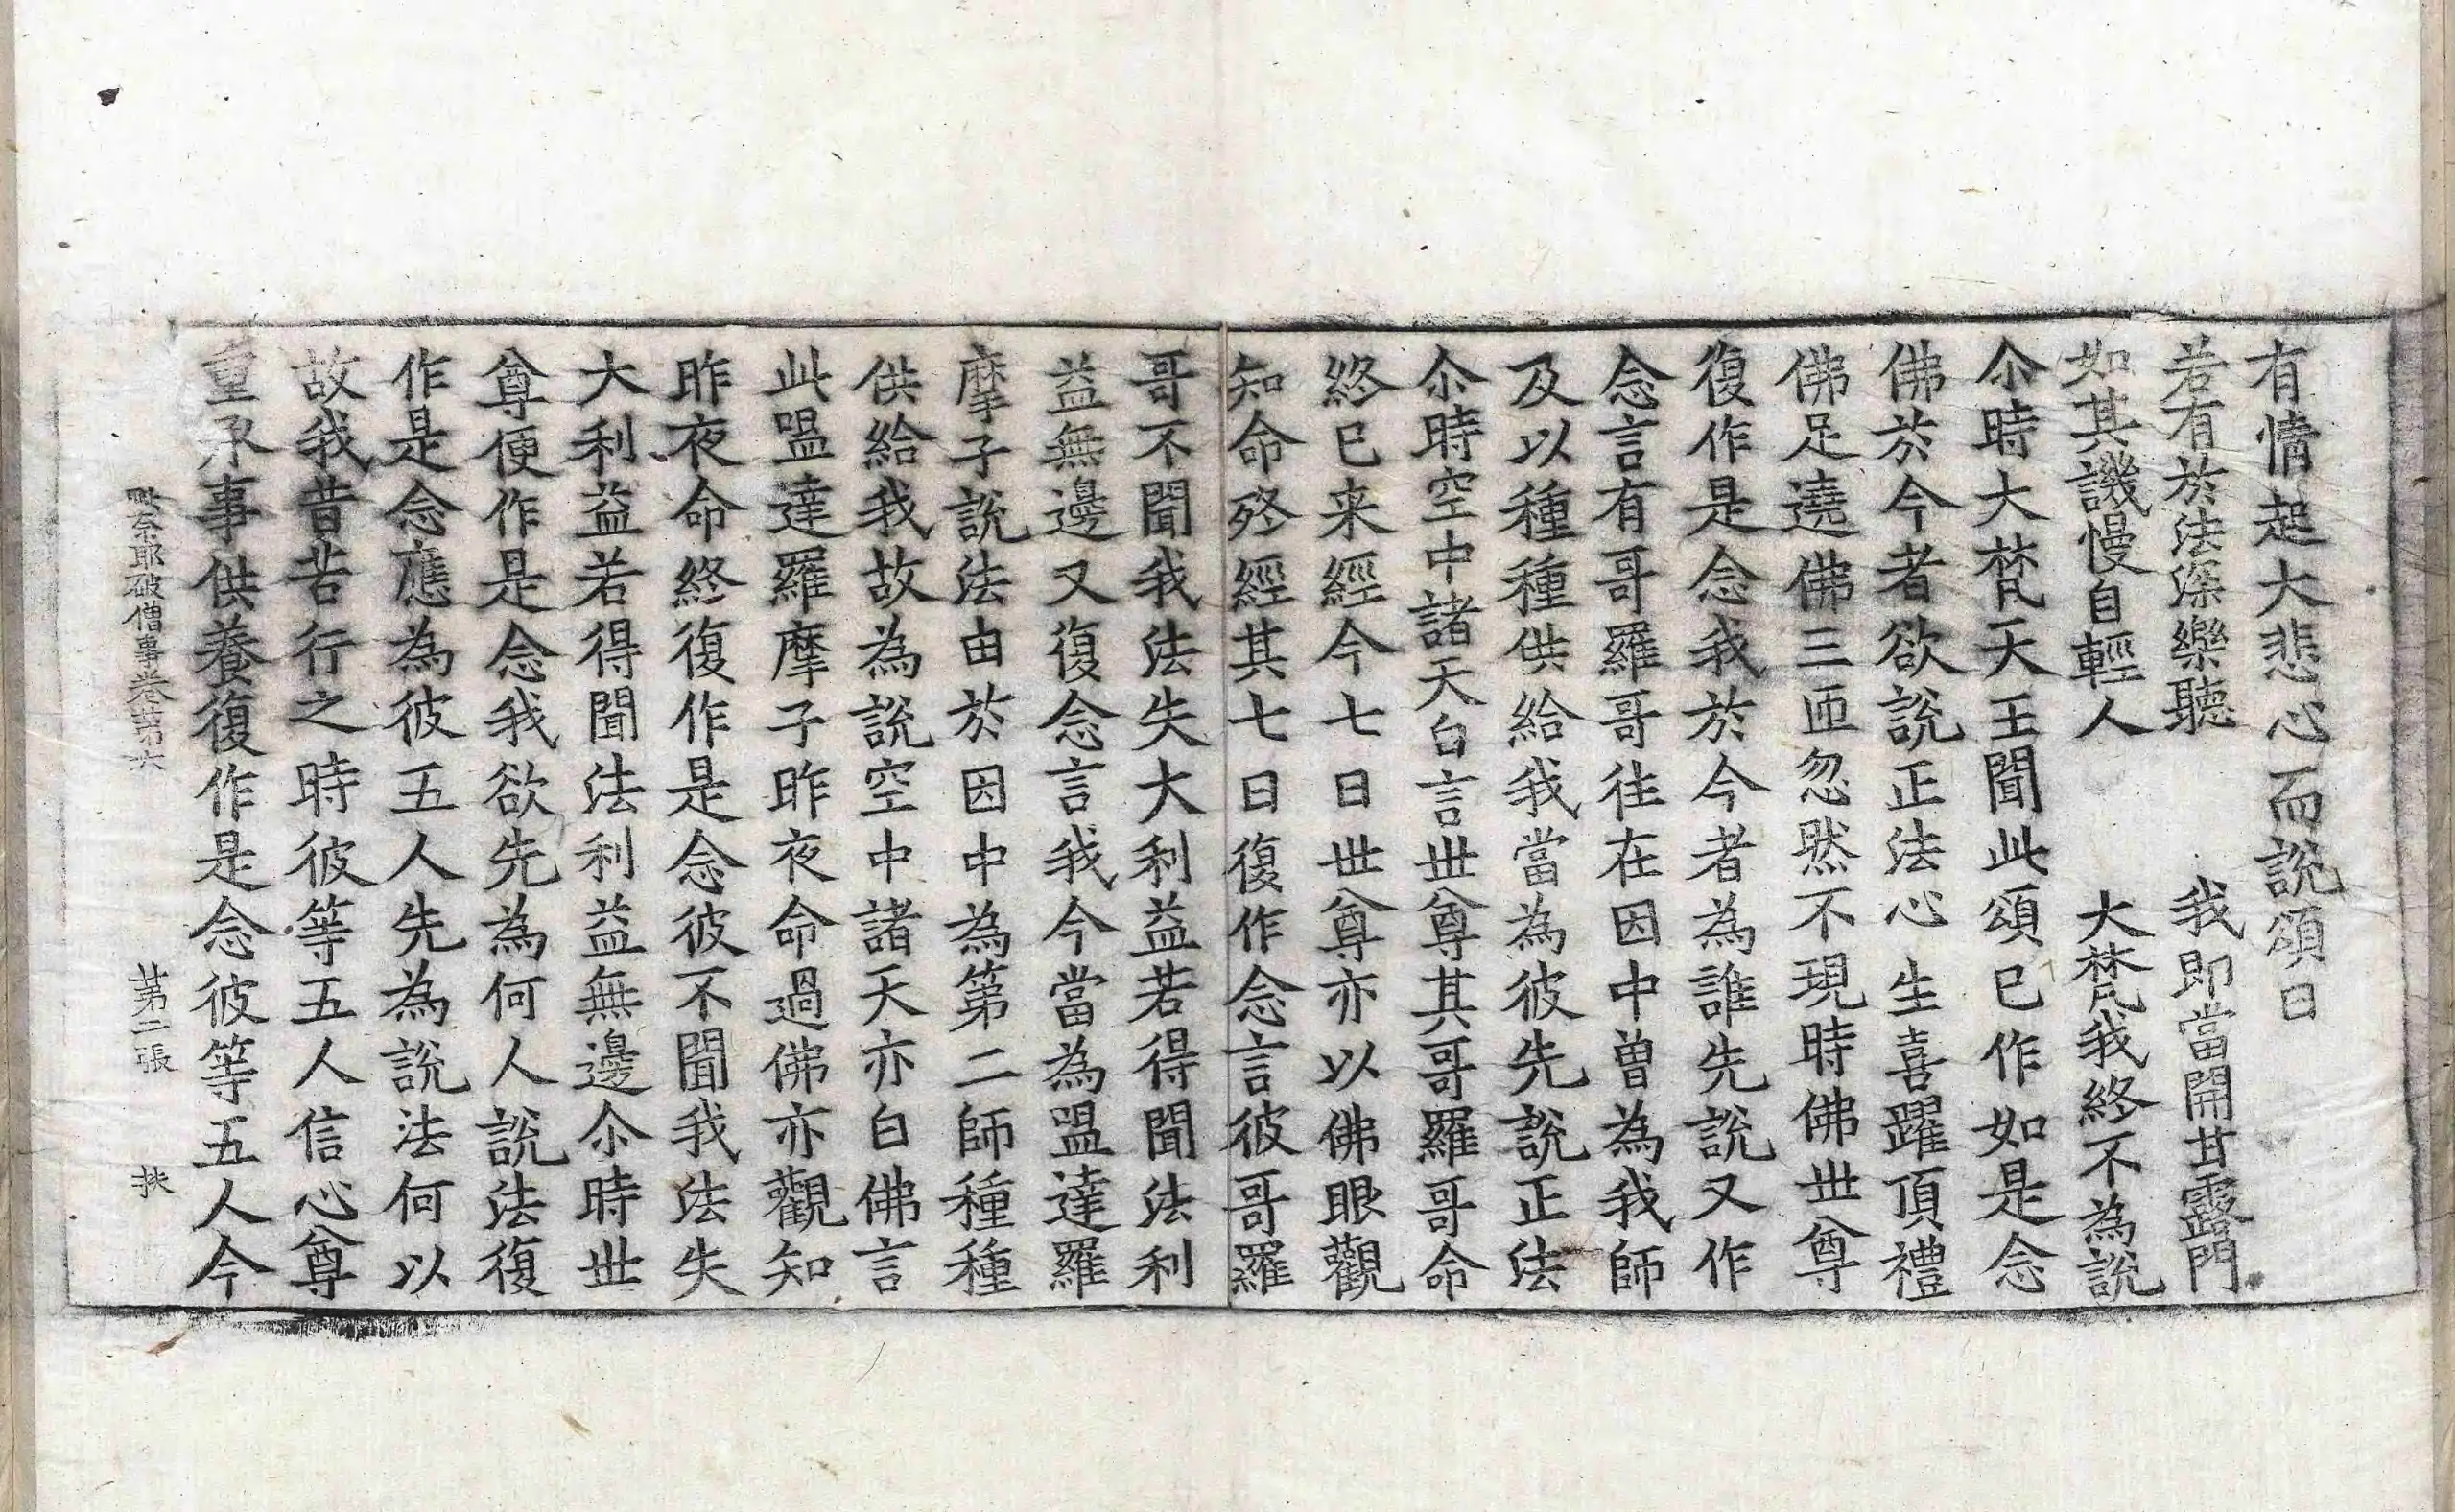 有情起大悲心而說頌曰
若有於法深樂聽　我即當開甘露門
如其譏慢自輕人　大梵我終不為說
尒時大梵天王聞此頌已作如是念
佛於今者欲說正法心生喜躍頂禮
佛足遶佛三匝忽然不現時佛世尊
復作是念我於今者為誰先說又作
念言有哥羅哥往在因中曽為我師
及以種種供給我當為彼先說正法
尒時空中諸天白言世尊其哥羅哥命
終已来經今七日世尊亦以佛眼觀
知命終經其七日復作念言彼哥羅
哥不聞我法失大利益若得聞法利
益無邊又復念言我今當為嗢達羅
摩子說法由於因中為第二師種種
供給我故為說空中諸天亦白佛言
此嗢達羅摩子昨夜命過佛亦觀知
昨夜命終復作是念彼不聞我法失
大利益若得聞法利益無邊尒時世
尊便作是念我欲先為何人說法復
作是念應為彼五人先為說法何以
故我昔苦行之時彼等五人信心尊
重承事供養復作是念彼等五人今
毗奈耶破僧事卷第六　第二張　扶